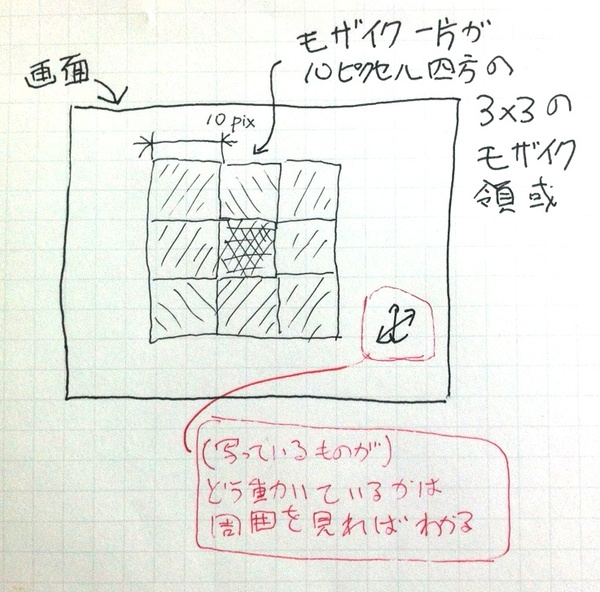 画面
モザイク一片が
10ピクセル四方の
3×3の
モザイク
領域
10 pix
(写っているものが)
どう動いているかは
周囲を見ればわかる